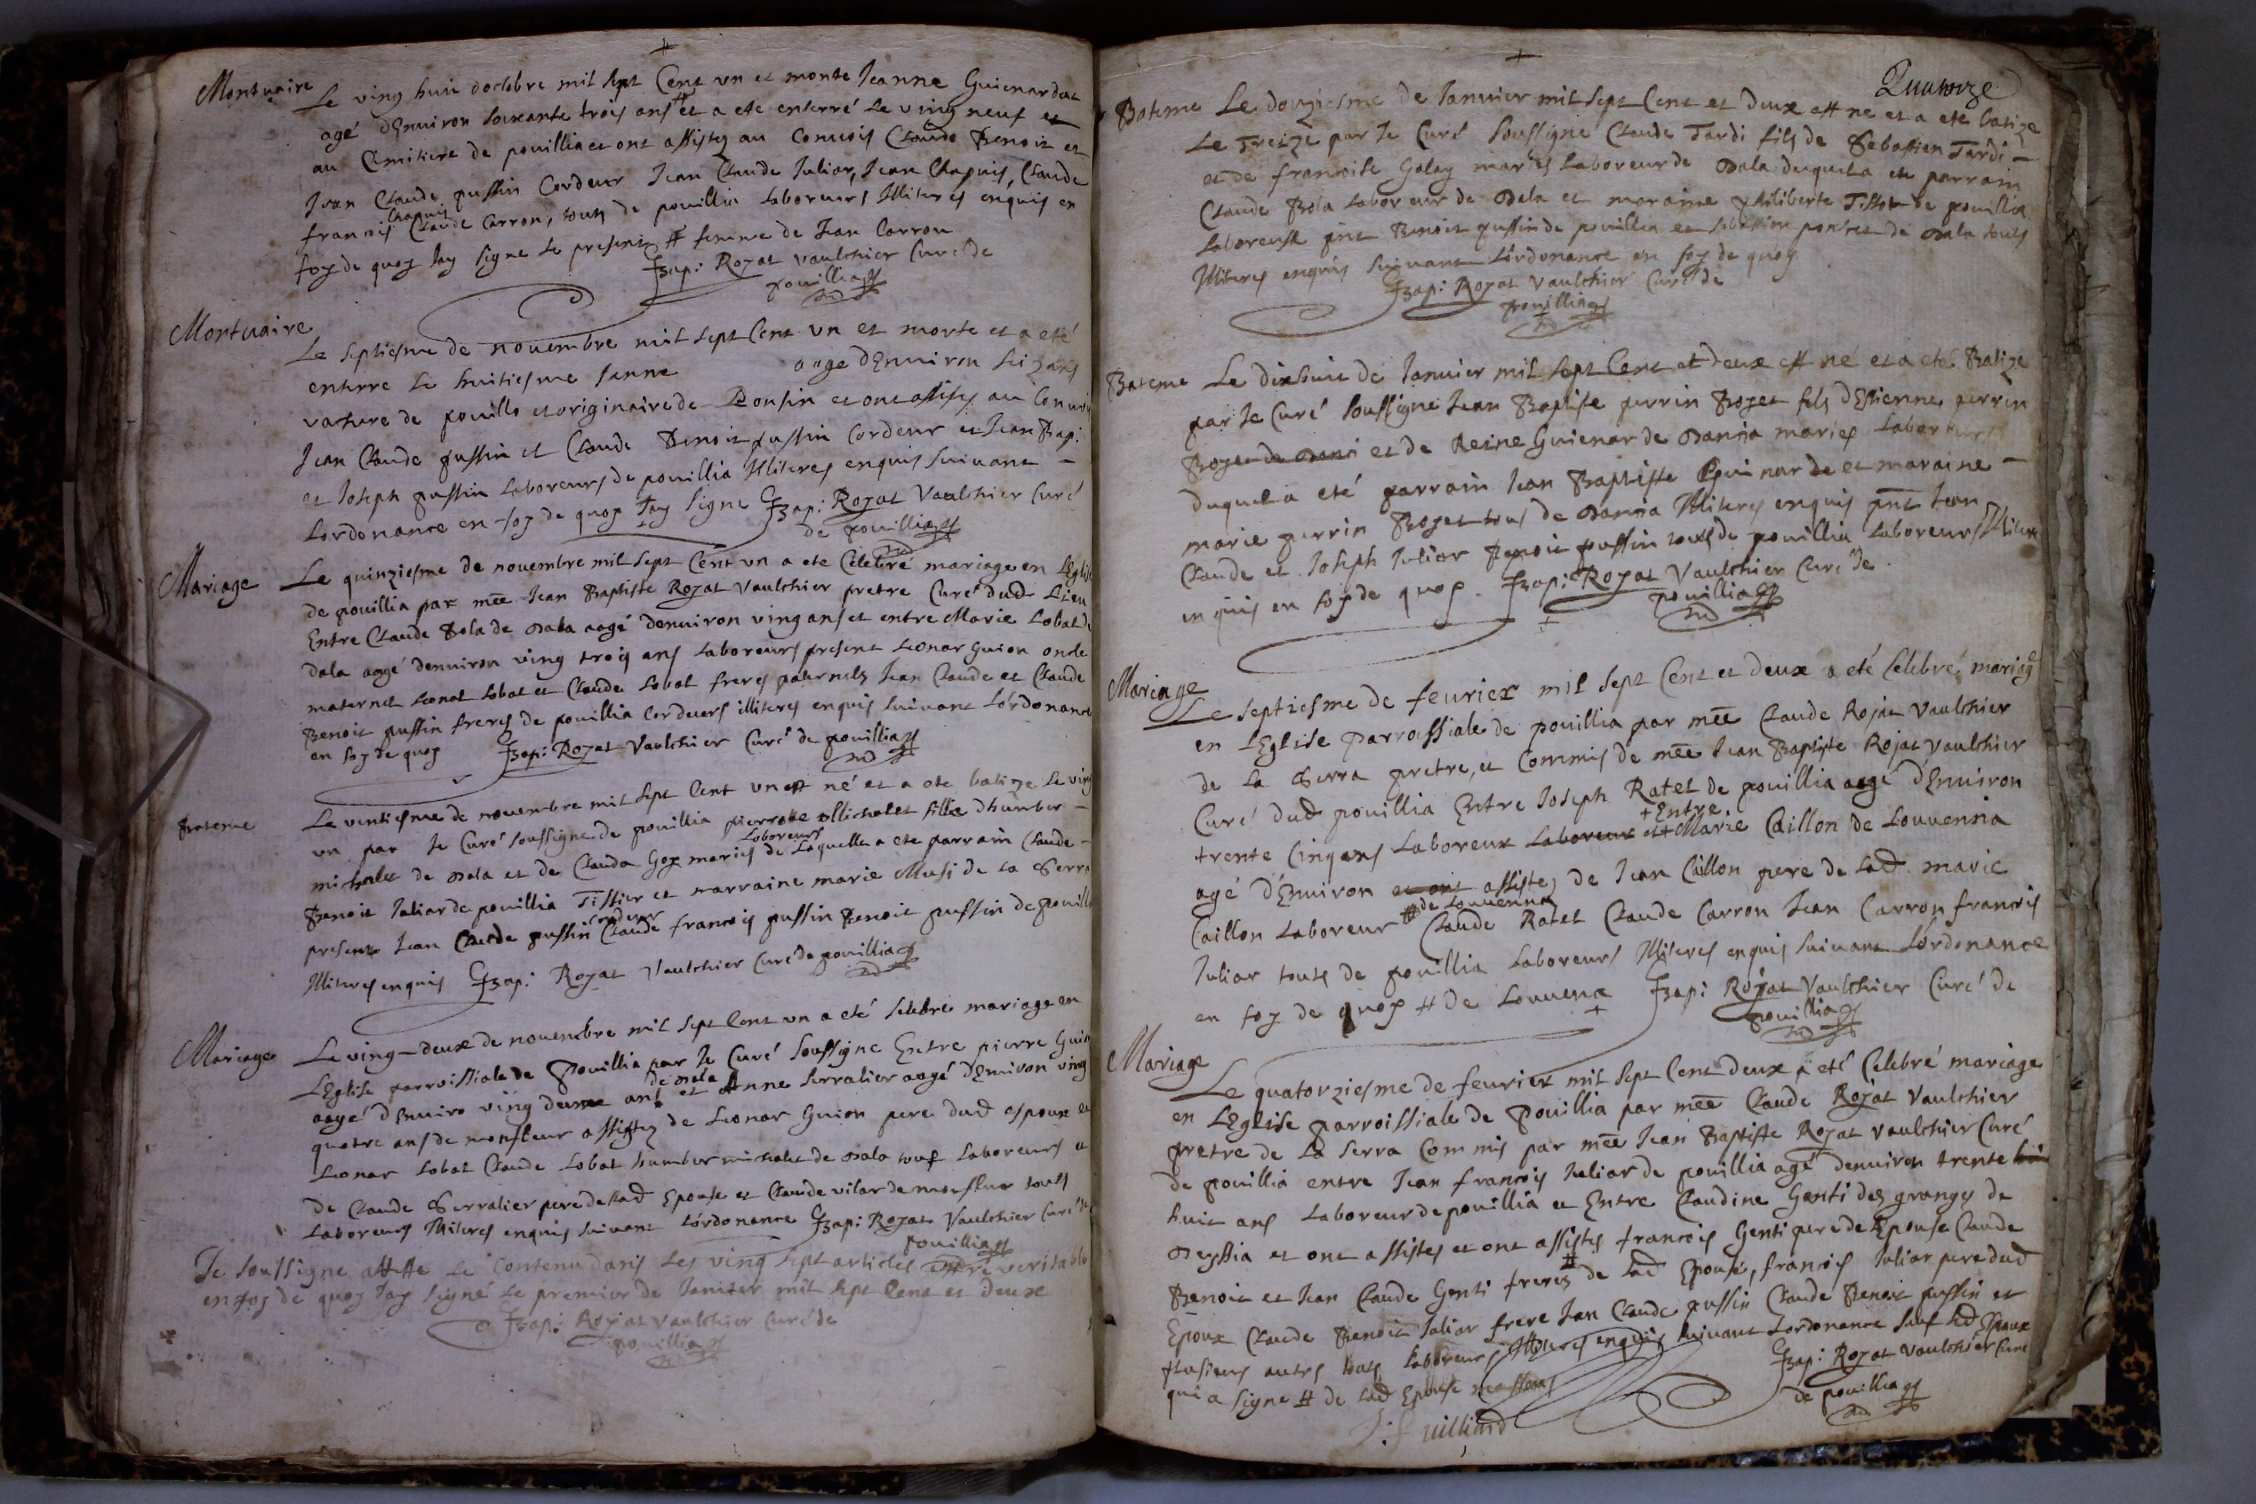 Mortuaire
Le ving huit doctobre mil sept Cent un et morte Jeanne Guienardat
agé dEnviron soixante trois ans # et a eté enterré Le ving neuf
au Cimitiere de pouillia et ont assistez au Convois Claude Benoit et
Jean Claude pussin Cordeur Jean Claude Juliar, Jean Chapuis, Claude
francois Chapuis Claude Carron, touts de pouillia Laboreurs Illiteres enquis en
foy de quoy Jay signe Le present # femme de Jean Carron
JBap: Royat vaulchier Curé de
pouillia
Mortuaire
Le septiesme de novembre mil sept Cent un et morte et a eté
enterre Le huitiesme Janne aage dEnviron seize ans
vachere de pouille et originaire de et ont assistez au Convoi
Jean Claude pussin et Claude Benoit pussin Cordeur et Jean Bap:
et Joseph pussin Laboreurs de pouillia Illiteres enquis suivant
Lordonance en foy de quoy Jay signe JBap: Royat Vaulchier Curé
de pouillia
Mariage
Le quinziesme de novembre mil sept Cent un a ete Celebré mariage en LEglise
de pouillia par mee Jean Baptiste Royat Vaulchier pretre Curé dud Lieu
Entre Claude Bola de dala aagé denviron ving ans et entre Marie Lobat de
dala aagé denviron ving trois ans Laboreurs present Leonar Guion oncle
maternel Leonat Lobat et Claude Lobat freres paternels Jean Claude et Claude
Benoit pussin freres de pouillia Cordeurs illiteres enquis suivant Lordonance
en foy de quoy JBap: Royat Vaulchier Curé de pouillia
Bateme
Le ventiesme de novembre mil sept Cent un est né et a ete batize Le ving
un par Je Curé soussigne de pouillia pierrette Michalet fille dhumber
michalet de dala et de Clauda Goy mariés Laboreurs de Laquelle a ete parrain Claude
Benoit Juliar de pouillia Tissier et marraine marie Musi de La Serra
presents Jean Claude pussin Cordeur Claude francois pussin Benoit pussin de pouillia
Illiteres enquis JBap: Royat Vaulchier Curé de pouillia
Mariage
Le ving deux de novembre mil sept Cent un a eté Celebré mariage en
LEglise parroissiale de Pouillia par Je Curé soussigne Entre pierre Guion
aagé dEnviro ving deux ans de dala et Anne serralier aagé dEnviron ving
quatre ans de monfleur assistez de Leonar Guion pere dud espoux et
Leonar Lobat Claude Lobat humber michalet de dala touts Laboreurs et
de Claude Serralier pere de Lad Epouse et Claude vilar de monfleur touts
Laboreurs Illiteres enquis suivant Lordonance JBap: Royat Vaulchier Curé de
pouillia
Je soussigne atteste Le Contenu dans Les ving sept articles estre veritable
en foy de quoy Jay signé Le premier de Janvier mil sept Cent et deux
JBap: Royat vaulchier Curé de
pouillia
Quatorze
Bateme
Le douziesme de Janvier mil sept Cent et deux est ne et a ete batize
Le Treize par Je Curé soussigné Claude Tardi fils de Sebastien Tardi
et de francoise Galay mariés Laboreur de dala duquel a ete parrain
Claude Bola Laboreur de dala et maraine philiberte Tissot de pouillia
Laboreuse pnt Benoit pussin de pouillia et sebastien poncet de dala touts
Illiteres enquis suivant Lordonance en foy de quoy
JBap: Royat Vaulchier Curé de
pouillia
Bateme
Le dixhuit de Janvier mil sept Cent et deux est né et a eté Batize
par Je Curé soussigne Jean Baptiste perrin Boyet fils dEstienne perrin
Boyet de dania et de Reine Guienar de dania mariés Laboreurs
duquel a eté parrain Jean Baptiste Guinarde et maraine
marie perrin Boyet tous de dania Illiteres enquis pnt Jean
Claude et Joseph Juliar Benoit pussin touts de pouillia Laboreurs Illiteres
enquis en foy de quoy JBap: Royat Vaulchier Curé de
pouillia
Mariage
Le septiesme de fevrier mil sept Cent et deux a eté Celebré mariage
en LEglise parroissiale de pouillia par mee Claude Rojat Vaulchier
de La Serra pretre, et Commis de mee Jean Baptiste Rojat vaulchier
Curé dud pouillia Entre Joseph Ratet de pouillia aagé dEnviron
trente Cinq ans Laboreux Laboreur et + Entre Marie Caillon de Louvenna
agé dEnviron et ont assistez de Jean Caillon pere de Lad marie
Caillon Laboreur # de Louvenna Claude Ratet Claude Carron Jean Carron francois
Juliar touts de pouillia Laboreurs Illiteres enquis suivant Lordonance
en foy de quoy # de Louvena JBap: Royat Vaulchier Curé de
pouillia
Mariage
Le quatorziesme de fevrier mil sept Cent deux a eté Celebré mariage
en LEglise parroissiale de Pouillia par mee Claude Royat Vaulchier
pretre de La Serra Commis par mee Jean Baptiste Royat vaulchier Curé
de pouillia entre Jean francois Juliar de pouillia agé denviron trente
huit ans Laboreur de pouillia et Entre Claudine Genti des granges de
dessia et ont assistes et ont assistés francois Genti pere de Epouse Claude
Benoit et Jean Claude Genti freres # de Lad Epouse, francois Juliar pere dud
Epoux Claude Benoit Juliar frere Jan Claude pussin Claude Benoit pussin et
plusieurs autres touts Laboreurs Illiteres enquis suivant Lordonance sauf Led Epoux
qui a signe # de Lad Epouse JBap: Royat vaulchier Curé
de pouillia